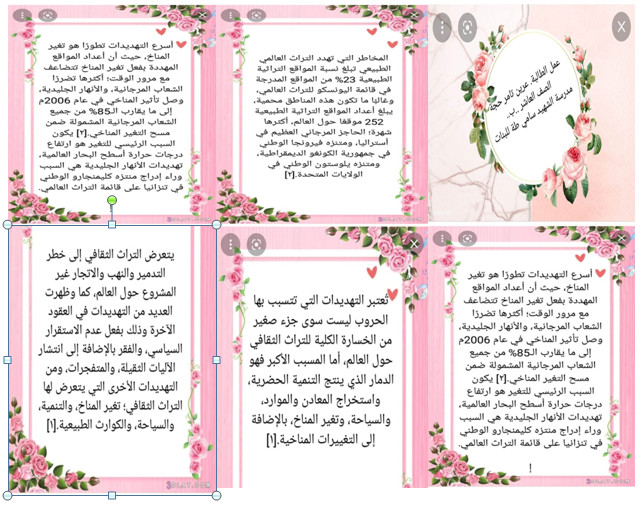 عمل الطالبة عرين ثامر حجة
الصف العاشر ,ب,
مدرسة الشهيد سامي طة للبنات
المخاطر التي تهدد التراث العالمي
الطبيعي تبلغ نسبة المواقع التراثية
الطبيعية 23% من المواقع المدرجة
في قائمة اليونسكو للتراث العالمي،
وغالبا ما تكون هذه المناطق محمية،
يبلغ أعداد المواقع التراثية الطبيعية
252 موقعا حول العالم، أكثرها
شهرة؛ الحاجز المرجاني العظيم في
أستراليا، ومنتزه فيرونجا الوطني
في جمهورية الكونغو الديمقراطية،
ومنتزه يلوستون الوطني في
الولايات المتحدة.[٢]
أسرع التهديدات تطورًا هو تغير
المناخ، حيث أن أعداد المواقع
المهددة بفعل تغير المناخ تتضاعف
مع مرور الوقت؛ أكثرها تضررًا
الشعاب المرجانية، والأنهار الجليدية،
وصل تأثير المناخي في عام 2006م
إلى ما يقارب الـ85% من جميع
الشعاب المرجانية المشمولة ضمن
مسح التغير المناخي.[٢] يكون
السبب الرئيسي للتغير هو ارتفاع
درجات حرارة أسطح البحار العالمية،
تهديدات الأنهار الجليدية هي السبب
وراء إدراج منتزه كليمنجارو الوطني
في تنزانيا على قائمة التراث العالمي.
أسرع التهديدات تطورًا هو تغير
المناخ، حيث أن أعداد المواقع
المهددة بفعل تغير المناخ تتضاعف
مع مرور الوقت؛ أكثرها تضررًا
الشعاب المرجانية، والأنهار الجليدية،
وصل تأثير المناخي في عام 2006م
إلى ما يقارب الـ85% من جميع
الشعاب المرجانية المشمولة ضمن
مسح التغير المناخي.[٢] يكون
السبب الرئيسي للتغير هو ارتفاع
درجات حرارة أسطح البحار العالمية،
تهديدات الأنهار الجليدية هي السبب
وراء إدراج منتزه كليمنجارو الوطني
في تنزانيا على قائمة التراث العالمي.
!
تُعتبر التهديدات التي تتسبب بها
الحروب ليست سوى جزء صغير
من الخسارة الكلية للتراث الثقافي
حول العالم، أما المسبب الأكبر فهو
الدمار الذي ينتج التنمية الحضرية،
واستخراج المعادن والموارد،
والسياحة، وتغير المناخ، بالإضافة
إلى التغييرات المناخية.[١]
يتعرض التراث الثقافي إلى خطر
التدمير والنهب والاتجار غير
المشروع حول العالم، كما وظهرت
العديد من التهديدات في العقود
الآخرة وذلك بفعل عدم الاستقرار
السياسي، والفقر بالإضافة إلى انتشار
الآليات الثقيلة، والمتفجرات، ومن
التهديدات الأخرى التي يتعرض لها
التراث الثقافي؛ تغير المناخ، والتنمية،
والسياحة، والكوارث الطبيعية.[١]